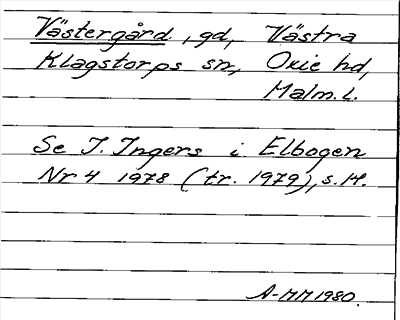 Västergård, gd, Västra
Klagstorps sn, Oxie hd,
Malm. l.
Se I. Ingers i Elbogen
Nr 4 1978 (tr. 1979), s. 14.
A-MM 1980.